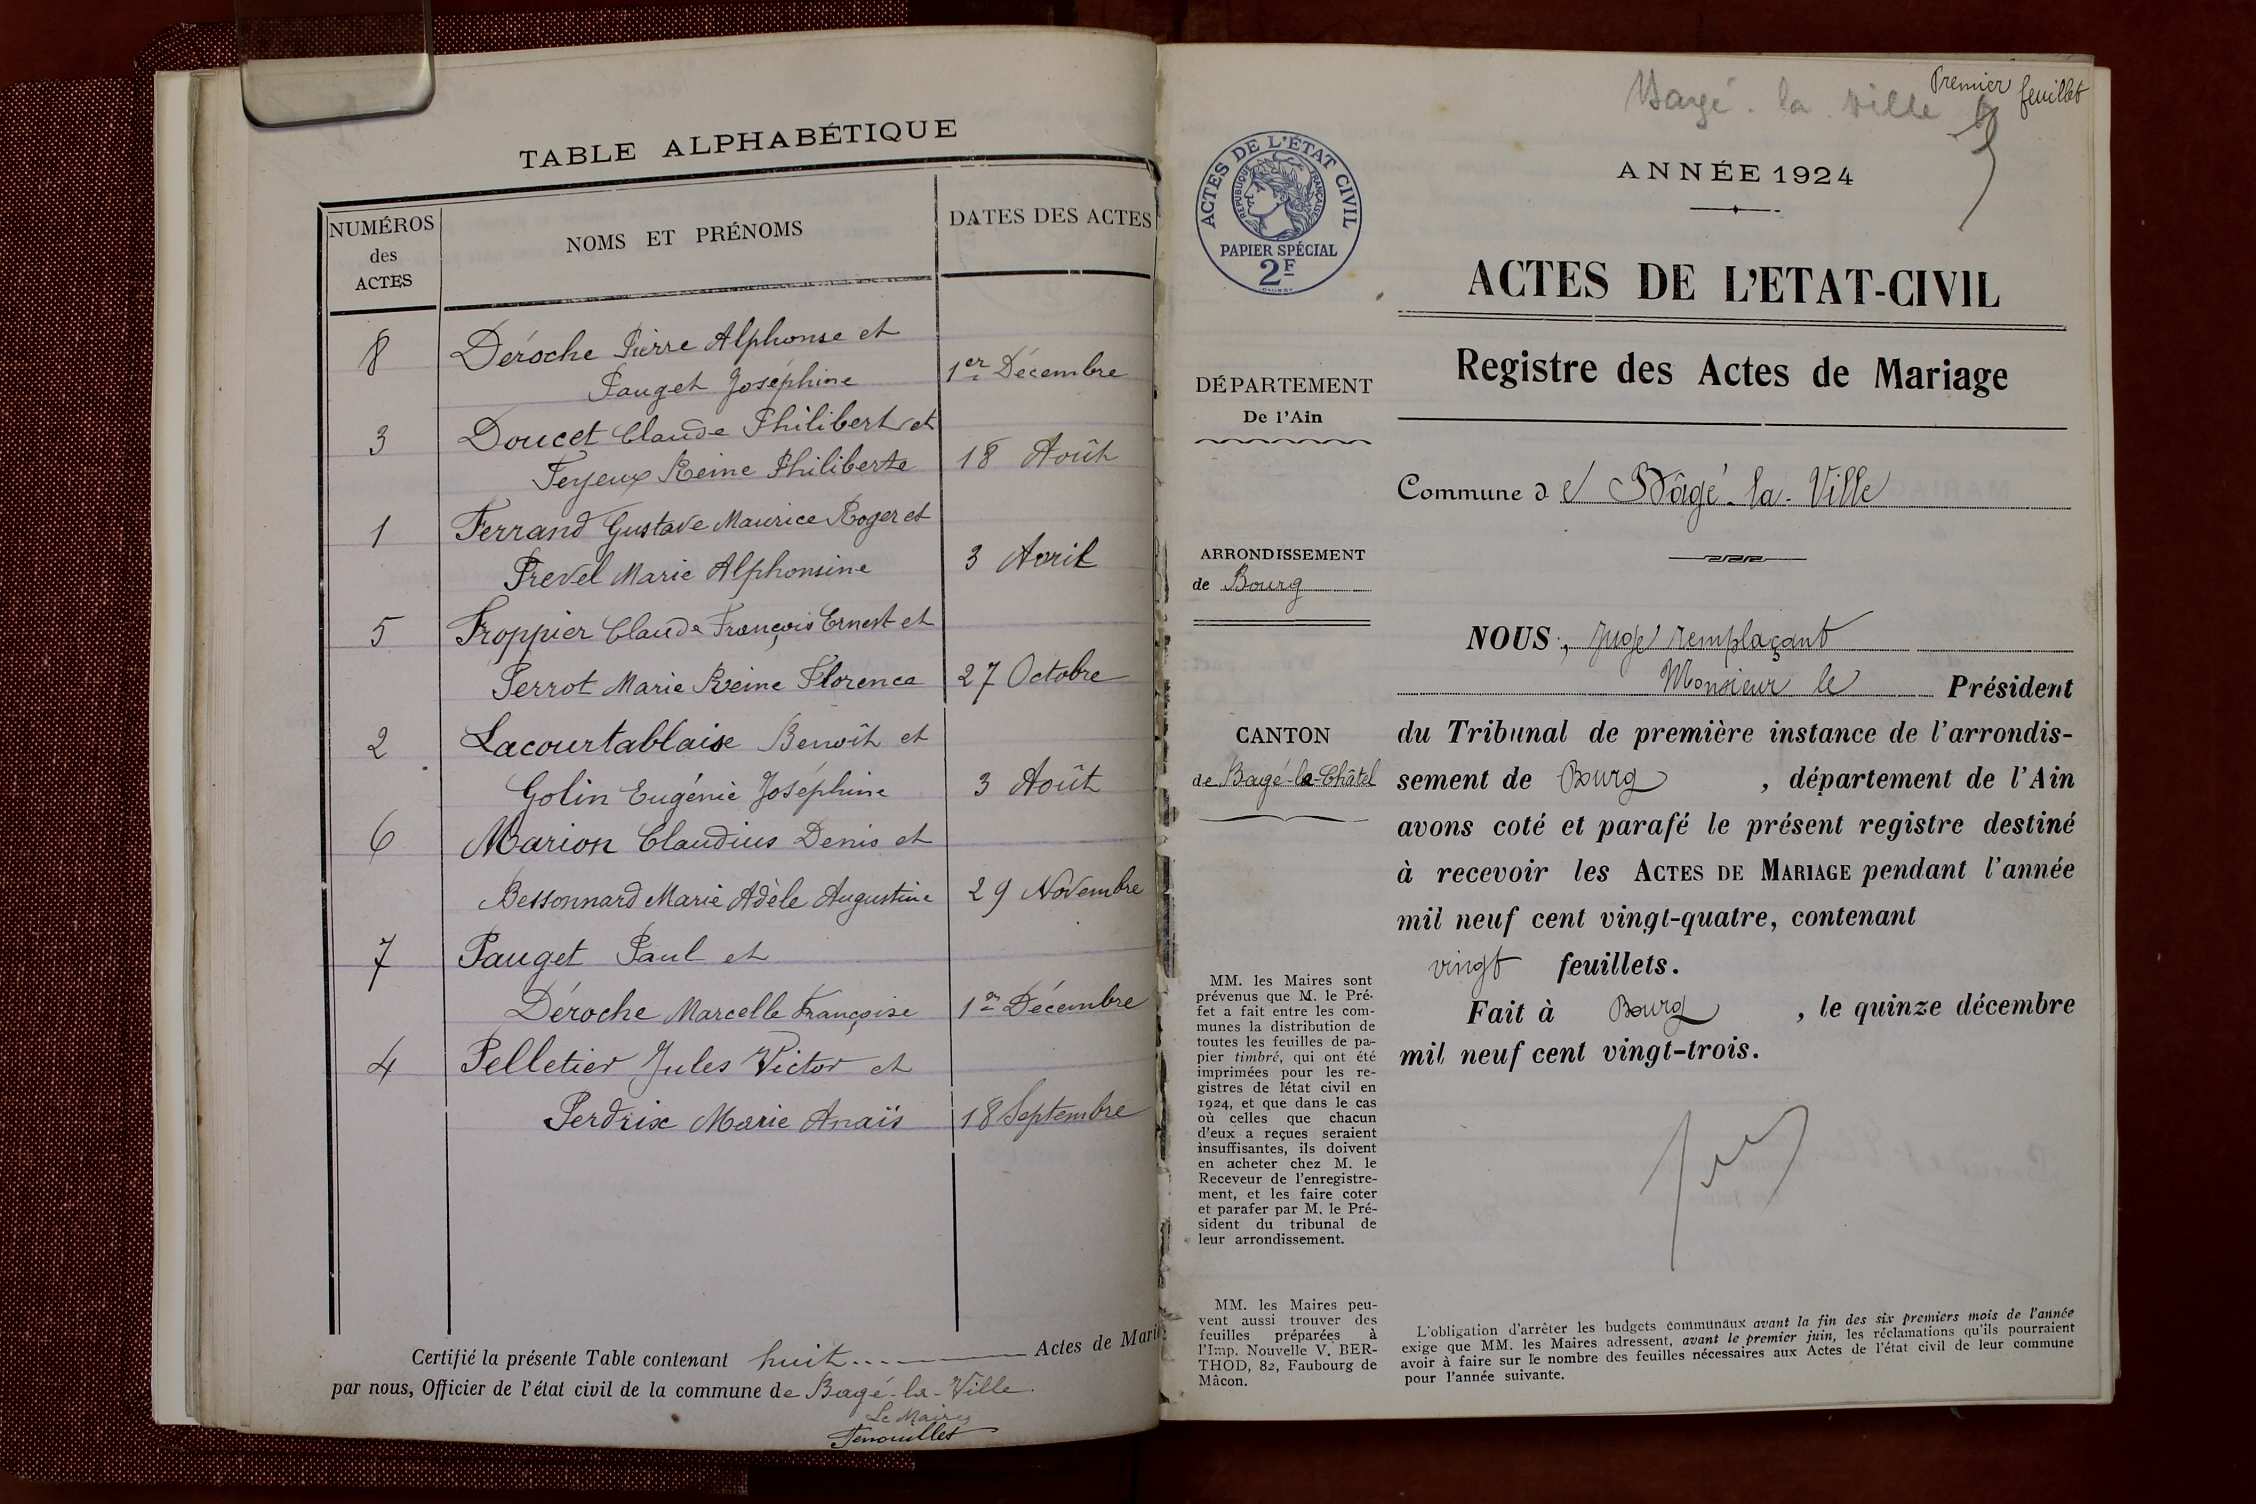 TABLE ALPHABÉTIQUE
NUMÉROS
des
ACTES
NOMS ET PRÉNOMS
DATES DES ACTES
8 Déroche Pierre Alphonse et
Pauget Joséphine 1er Décembre
3 Doucet Claude Philibert et
Feyeux Reine Philiberte 18 Août
1 Ferrand Gustave Maurice Roger et
Prevel Marie Alphonsine 3 Avril
5 Froppier Claude François Ernest et
Perrot Marie Reine Florence 27 Octobre
2 Lacourtablaise Benoît et
Golin Eugénie Joséphine 3 Août
6 Marion Claudius Denis et
Bessonnard Marie Adèle Augustine 29 Novembre
7 Pauget Paul et
Déroche Marcelle Françoise 1er Décembre
4 Pelletier Jules Victor et
Perdrix Marie Anaïs 18 Septembre
Certifié la présente Table contenant huit Actes de Mari
par nous, Officier de l'état civil de la commune de Bagé-la-Ville.
Le Maire
Premier feuillet
Bagé-la-Ville
ACTES DE L'ÉTAT CIVIL
RÉPUBLIQUE FRANÇAISE
PAPIER SPÉCIAL
2F
ANNÉE 1924
ACTES DE L'ETAT-CIVIL
Registre des Actes de Mariage
DÉPARTEMENT
De l'Ain
Commune de Bâgé-la-Ville
ARRONDISSEMENT
de Bourg
NOUS, Juge remplaçant
Monsieur le Président
CANTON
de Bagé-le-Châtel
du Tribunal de première instance de l'arrondis-
sement de Bourg, département de l'Ain
avons coté et parafé le présent registre destiné
à recevoir les ACTES DE MARIAGE pendant l'année
mil neuf cent vingt-quatre, contenant
vingt feuillets.
Fait à Bourg, le quinze décembre
mil neuf cent vingt-trois.
MM. les Maires sont
prévenus que M. le Pré-
fet a fait entre les com-
munes la distribution de
toutes les feuilles de pa-
pier timbré, qui ont été
imprimées pour les re-
gistres de l'état civil en
1924, et que dans le cas
où celles que chacun
d'eux a reçues seraient
insuffisantes, ils doivent
en acheter chez M. le
Receveur de l'enregistre-
ment, et les faire coter
et parafer par M. le Pré-
sident du tribunal de
leur arrondissement.
MM. les Maires peu-
vent aussi trouver des
feuilles préparées à
l'Imp. Nouvelle V. BER-
THOD, 82, Faubourg de
Mâcon.
L'obligation d'arrêter les budgets communaux avant la fin des six premiers mois de l'année
exige que MM. les Maires adressent, avant le premier juin, les réclamations qu'ils pourraient
avoir à faire sur le nombre des feuilles nécessaires aux Actes de l'état civil de leur commune
pour l'année suivante.